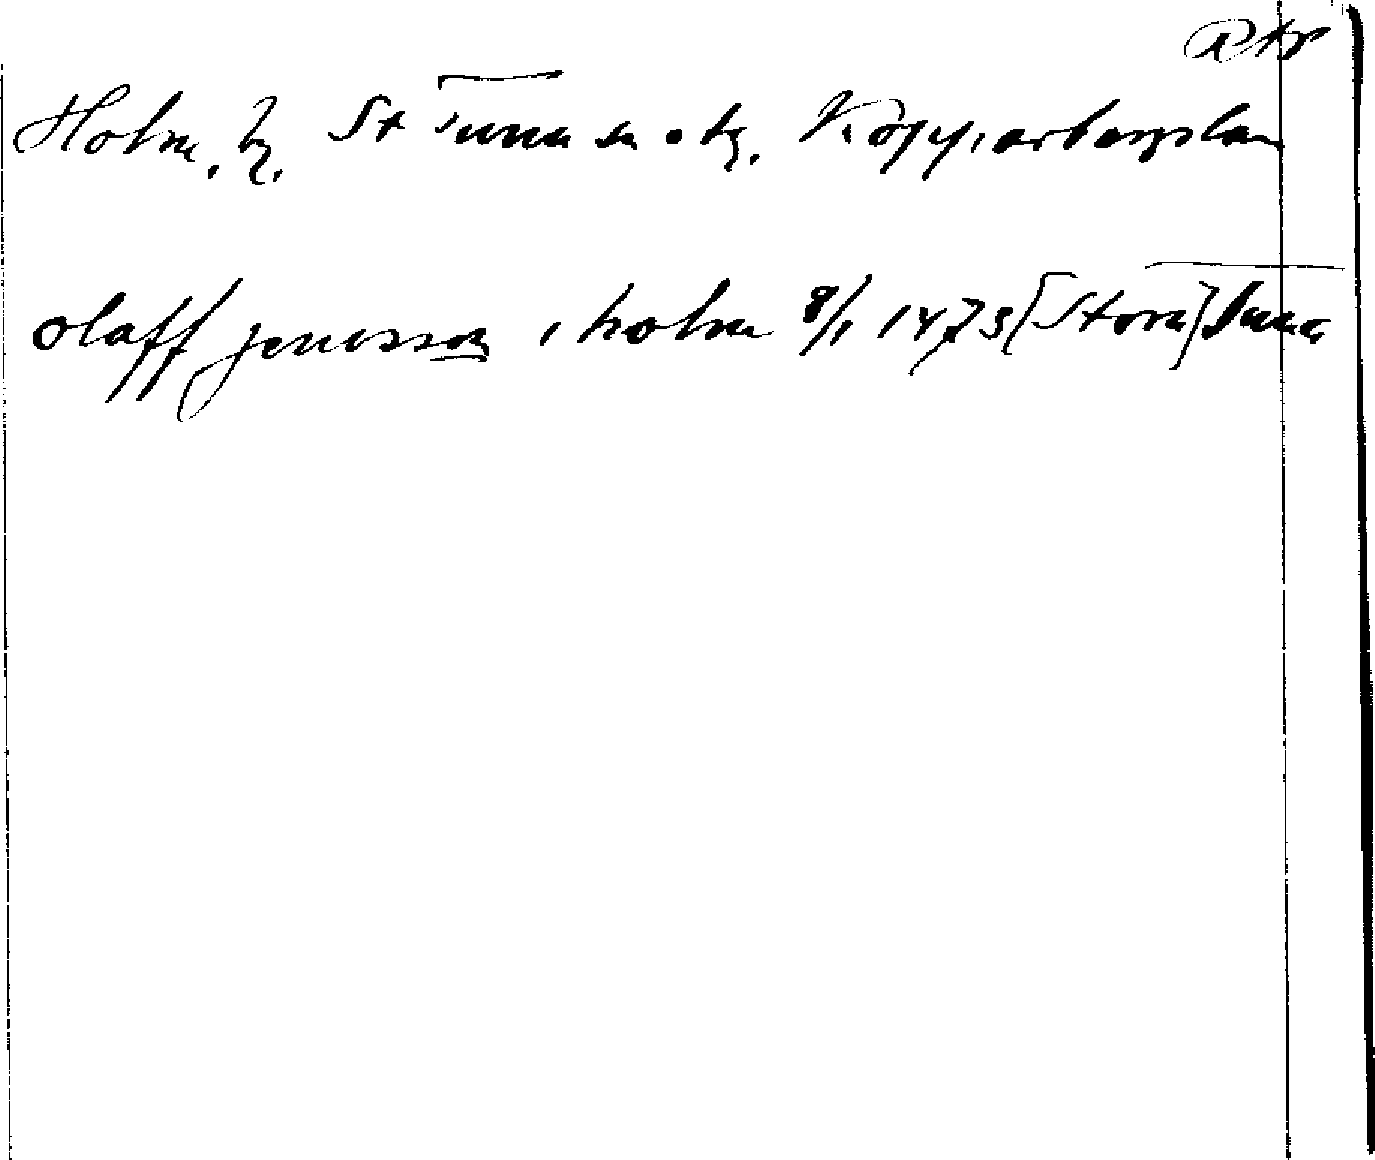 Holm, by, St Tuna sn o tg, Kopparbergs län
olaff jenesson i holm 8/1 1473 [Stora] Tuna